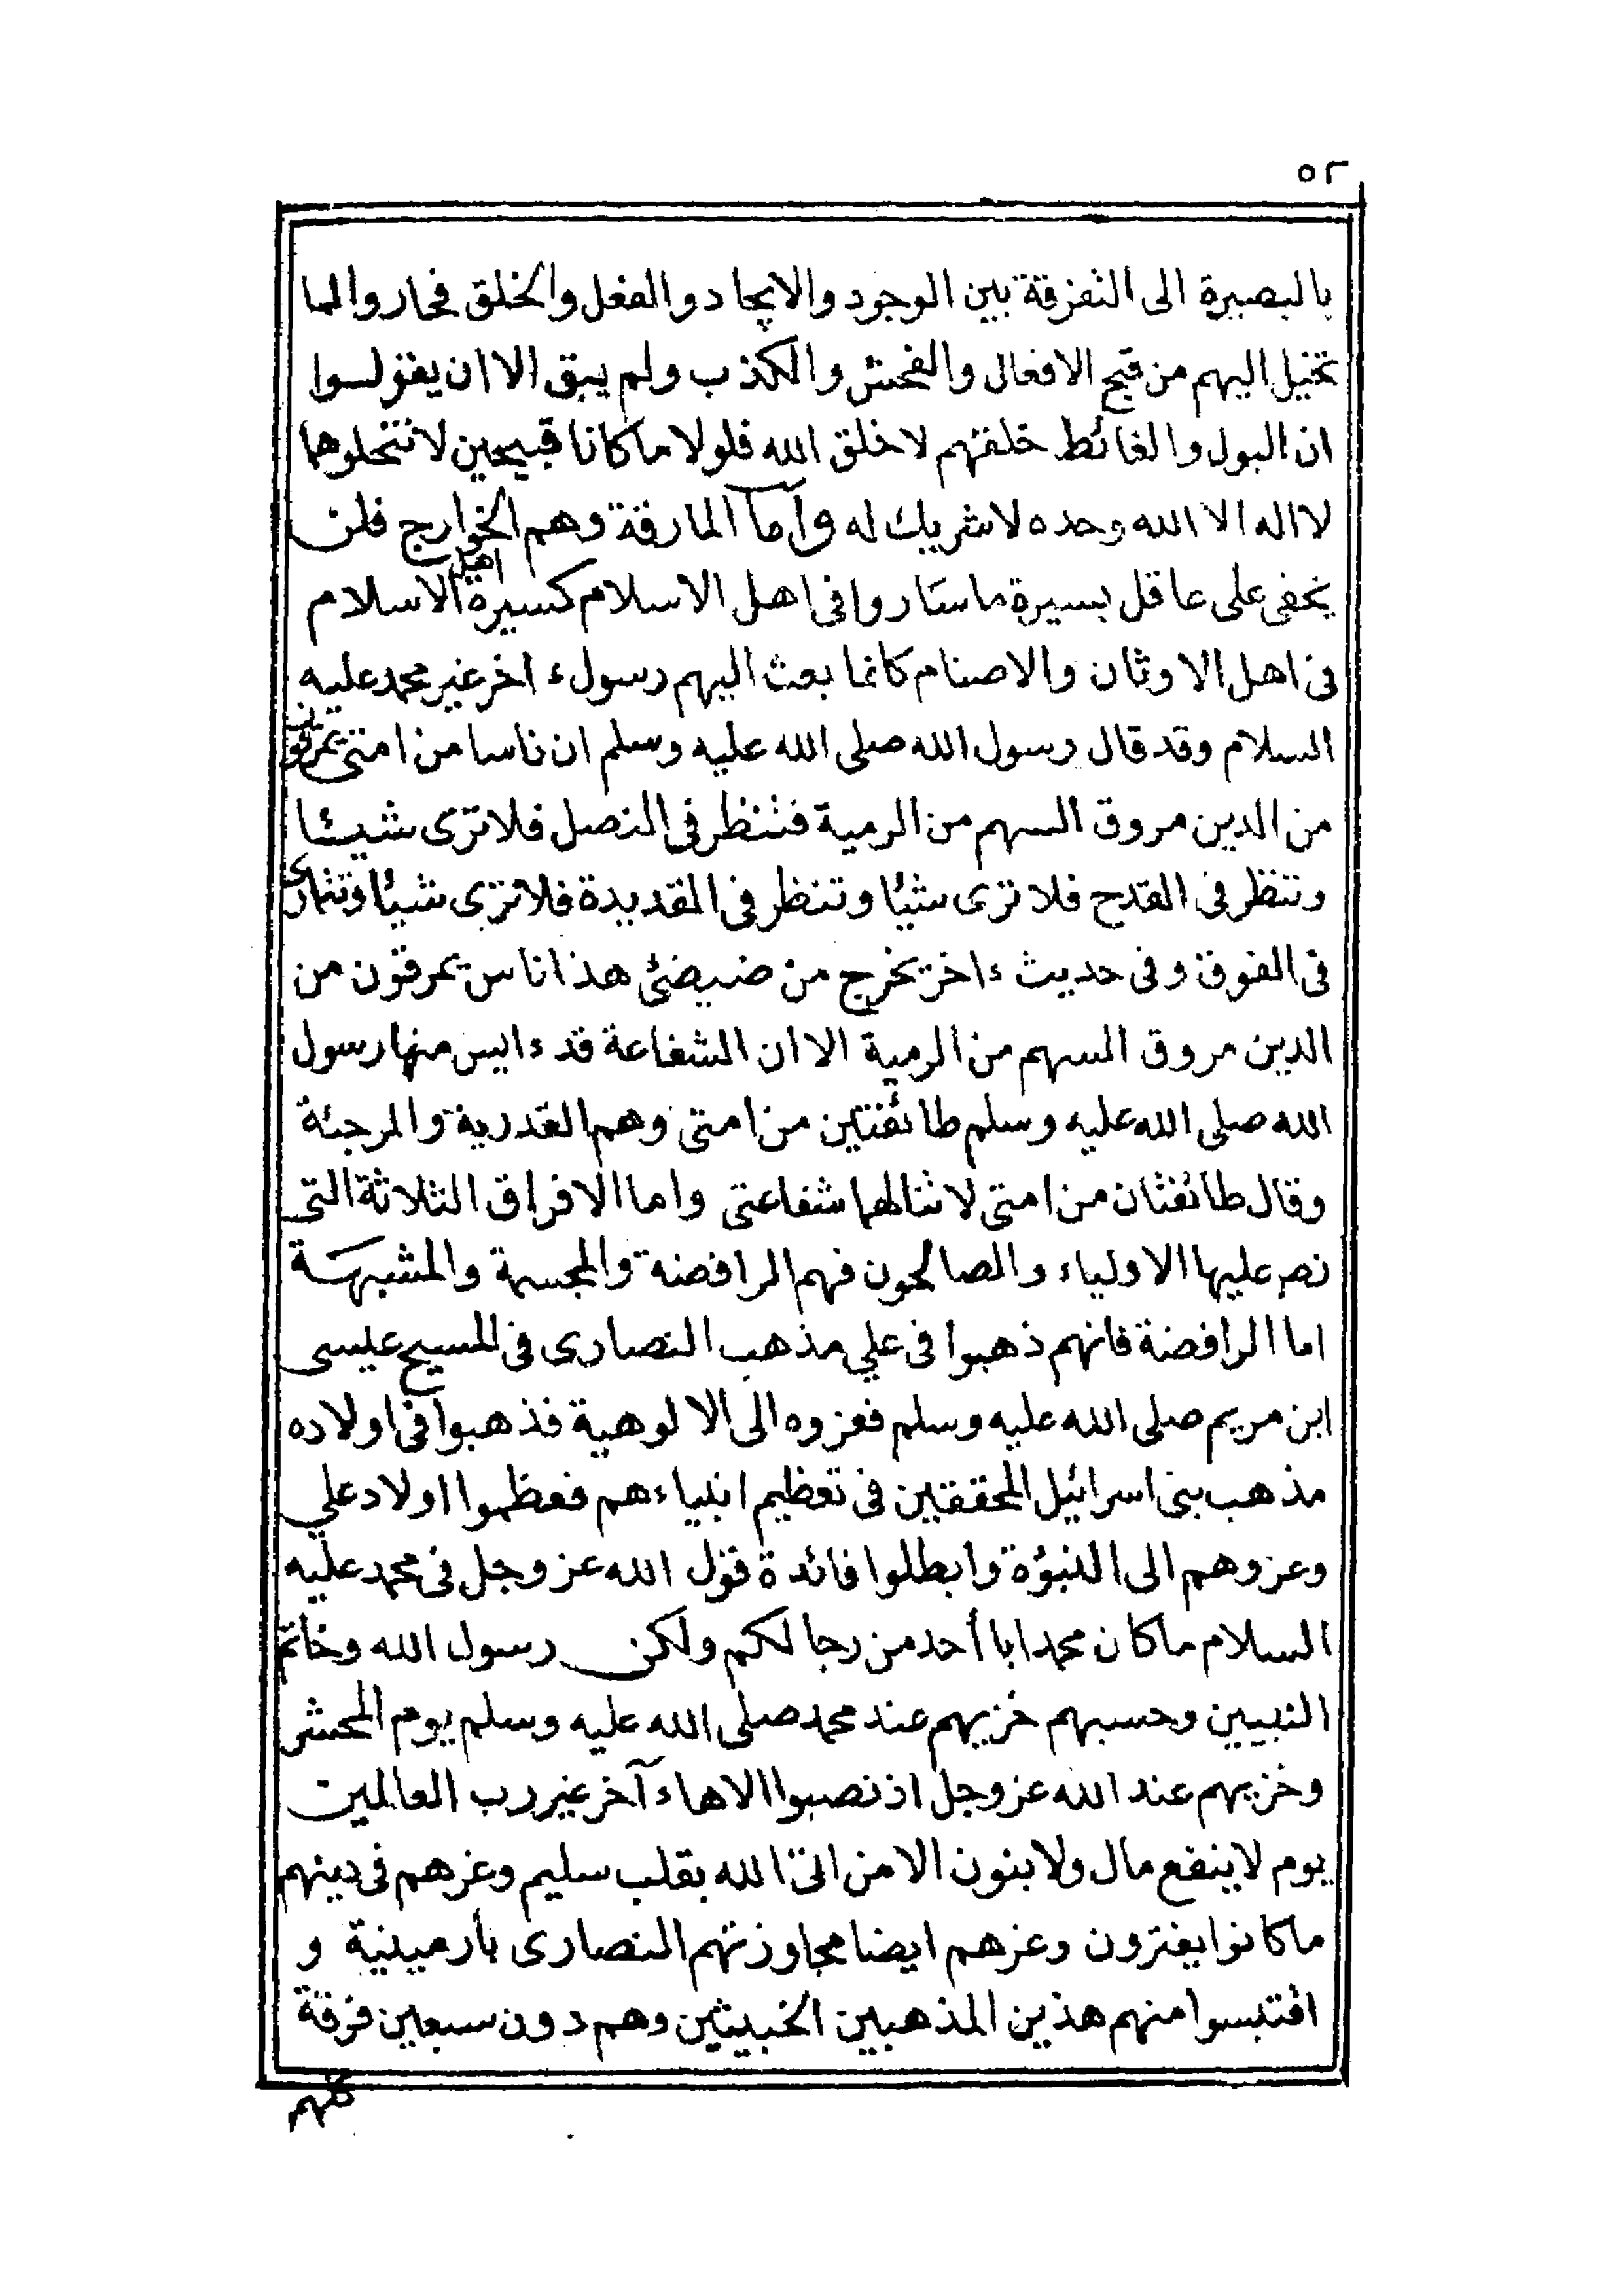 ٥٢
بالبصيرة الى التفرقة بين الوجود والايجاد والفعل والخلق فحاروا لما
تخيل اليهم من قبح الافعال والفحش والكذب ولم يبق الا ان يقولوا
ان البول والغائط خلقتهم لا خلق الله فلولا ما كانا قبيحين لانتحلوهما
لا اله الا الله وحده لا شريك له وأما المارقة وهم الخوارج فلن
يخفى على عاقل بسيرة ما ساروا في اهل الاسلام كسيرة اهل الاسلام
في اهل الاوثان والاصنام كانما بعث اليهم رسولء اخر غير محمد عليه
السلام وقد قال رسول الله صلى الله عليه وسلم ان ناسا من امتي يمرقون
من الدين مروق السهم من الرمية فتنظر في النصل فلا ترى شيئا
وتنظر في القدح فلا ترى شيئا وتنظر في القديدة فلا ترى شيئا وتتمارى
في الفوق وفي حديث ءاخر يخرج من ضيضئ هذا ناس يمرقون من
الدين مروق السهم من الرمية الا ان الشفاعة قد ءايس منها رسول
الله صلى الله عليه وسلم طائفتين من امتي وهم القدرية والمرجئة
وقال طائفتان من امتي لا تنالهما شفاعتي واما الافراق الثلاثة التي
نص عليها الاولياء والصالحون فهم الرافضة والمجسمة والمشبهة
اما الرافضة فانهم ذهبوا في علي مذهب النصارى في المسيح عيسى
ابن مريم صلى الله عليه وسلم فعزوه الى الالوهية فذهبوا في اولاده
مذهب بني اسرائيل المحققين في تعظيم انبياءهم فعظموا اولاد علي
وعزوهم الى النبوة وابطلوا فائدة قول الله عز وجل في محمد عليه
السلام ما كان محمد ابا أحد من رجالكم ولكن رسول الله وخاتم
النبيين وحسبهم خزيهم عند محمد صلى الله عليه وسلم يوم المحشر
وخزيهم عند الله عز وجل اذ نصبوا الاهاء آخر غير رب العالمين
يوم لا ينفع مال ولا بنون الا من اتى الله بقلب سليم وغرهم في دينهم
ما كانوا يفترون وغرهم ايضا مجاوزتهم النصارى بأرمينية و
اقتبسوا منهم هذين المذهبين الخبيثين وهم دون سبعين فرقة
كلهم